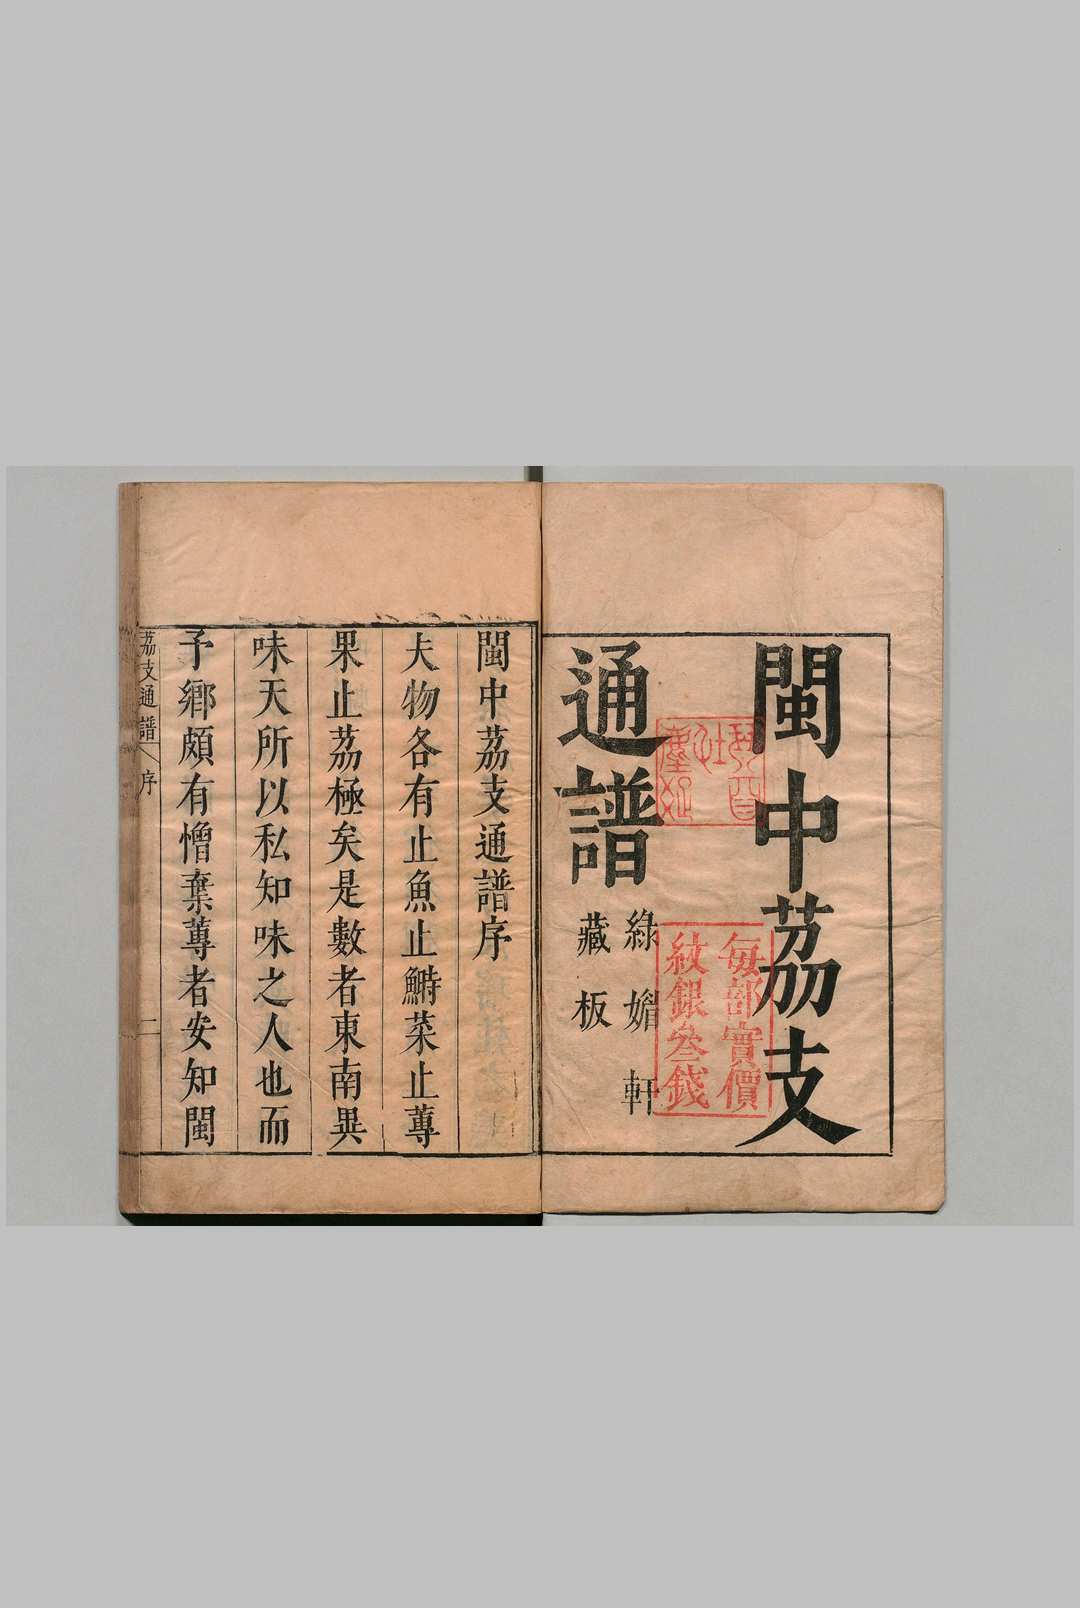 閩中茘支
通譜
綠媚軒
藏板
每部實價
紋銀叄錢
閩中茘支通譜序
夫物各有止魚止鰣菜止蓴
果止茘極矣是數者東南異
味天所以私知味之人也而
予鄉頗有憎棄蓴者安知閩
茘支通譜
序
二